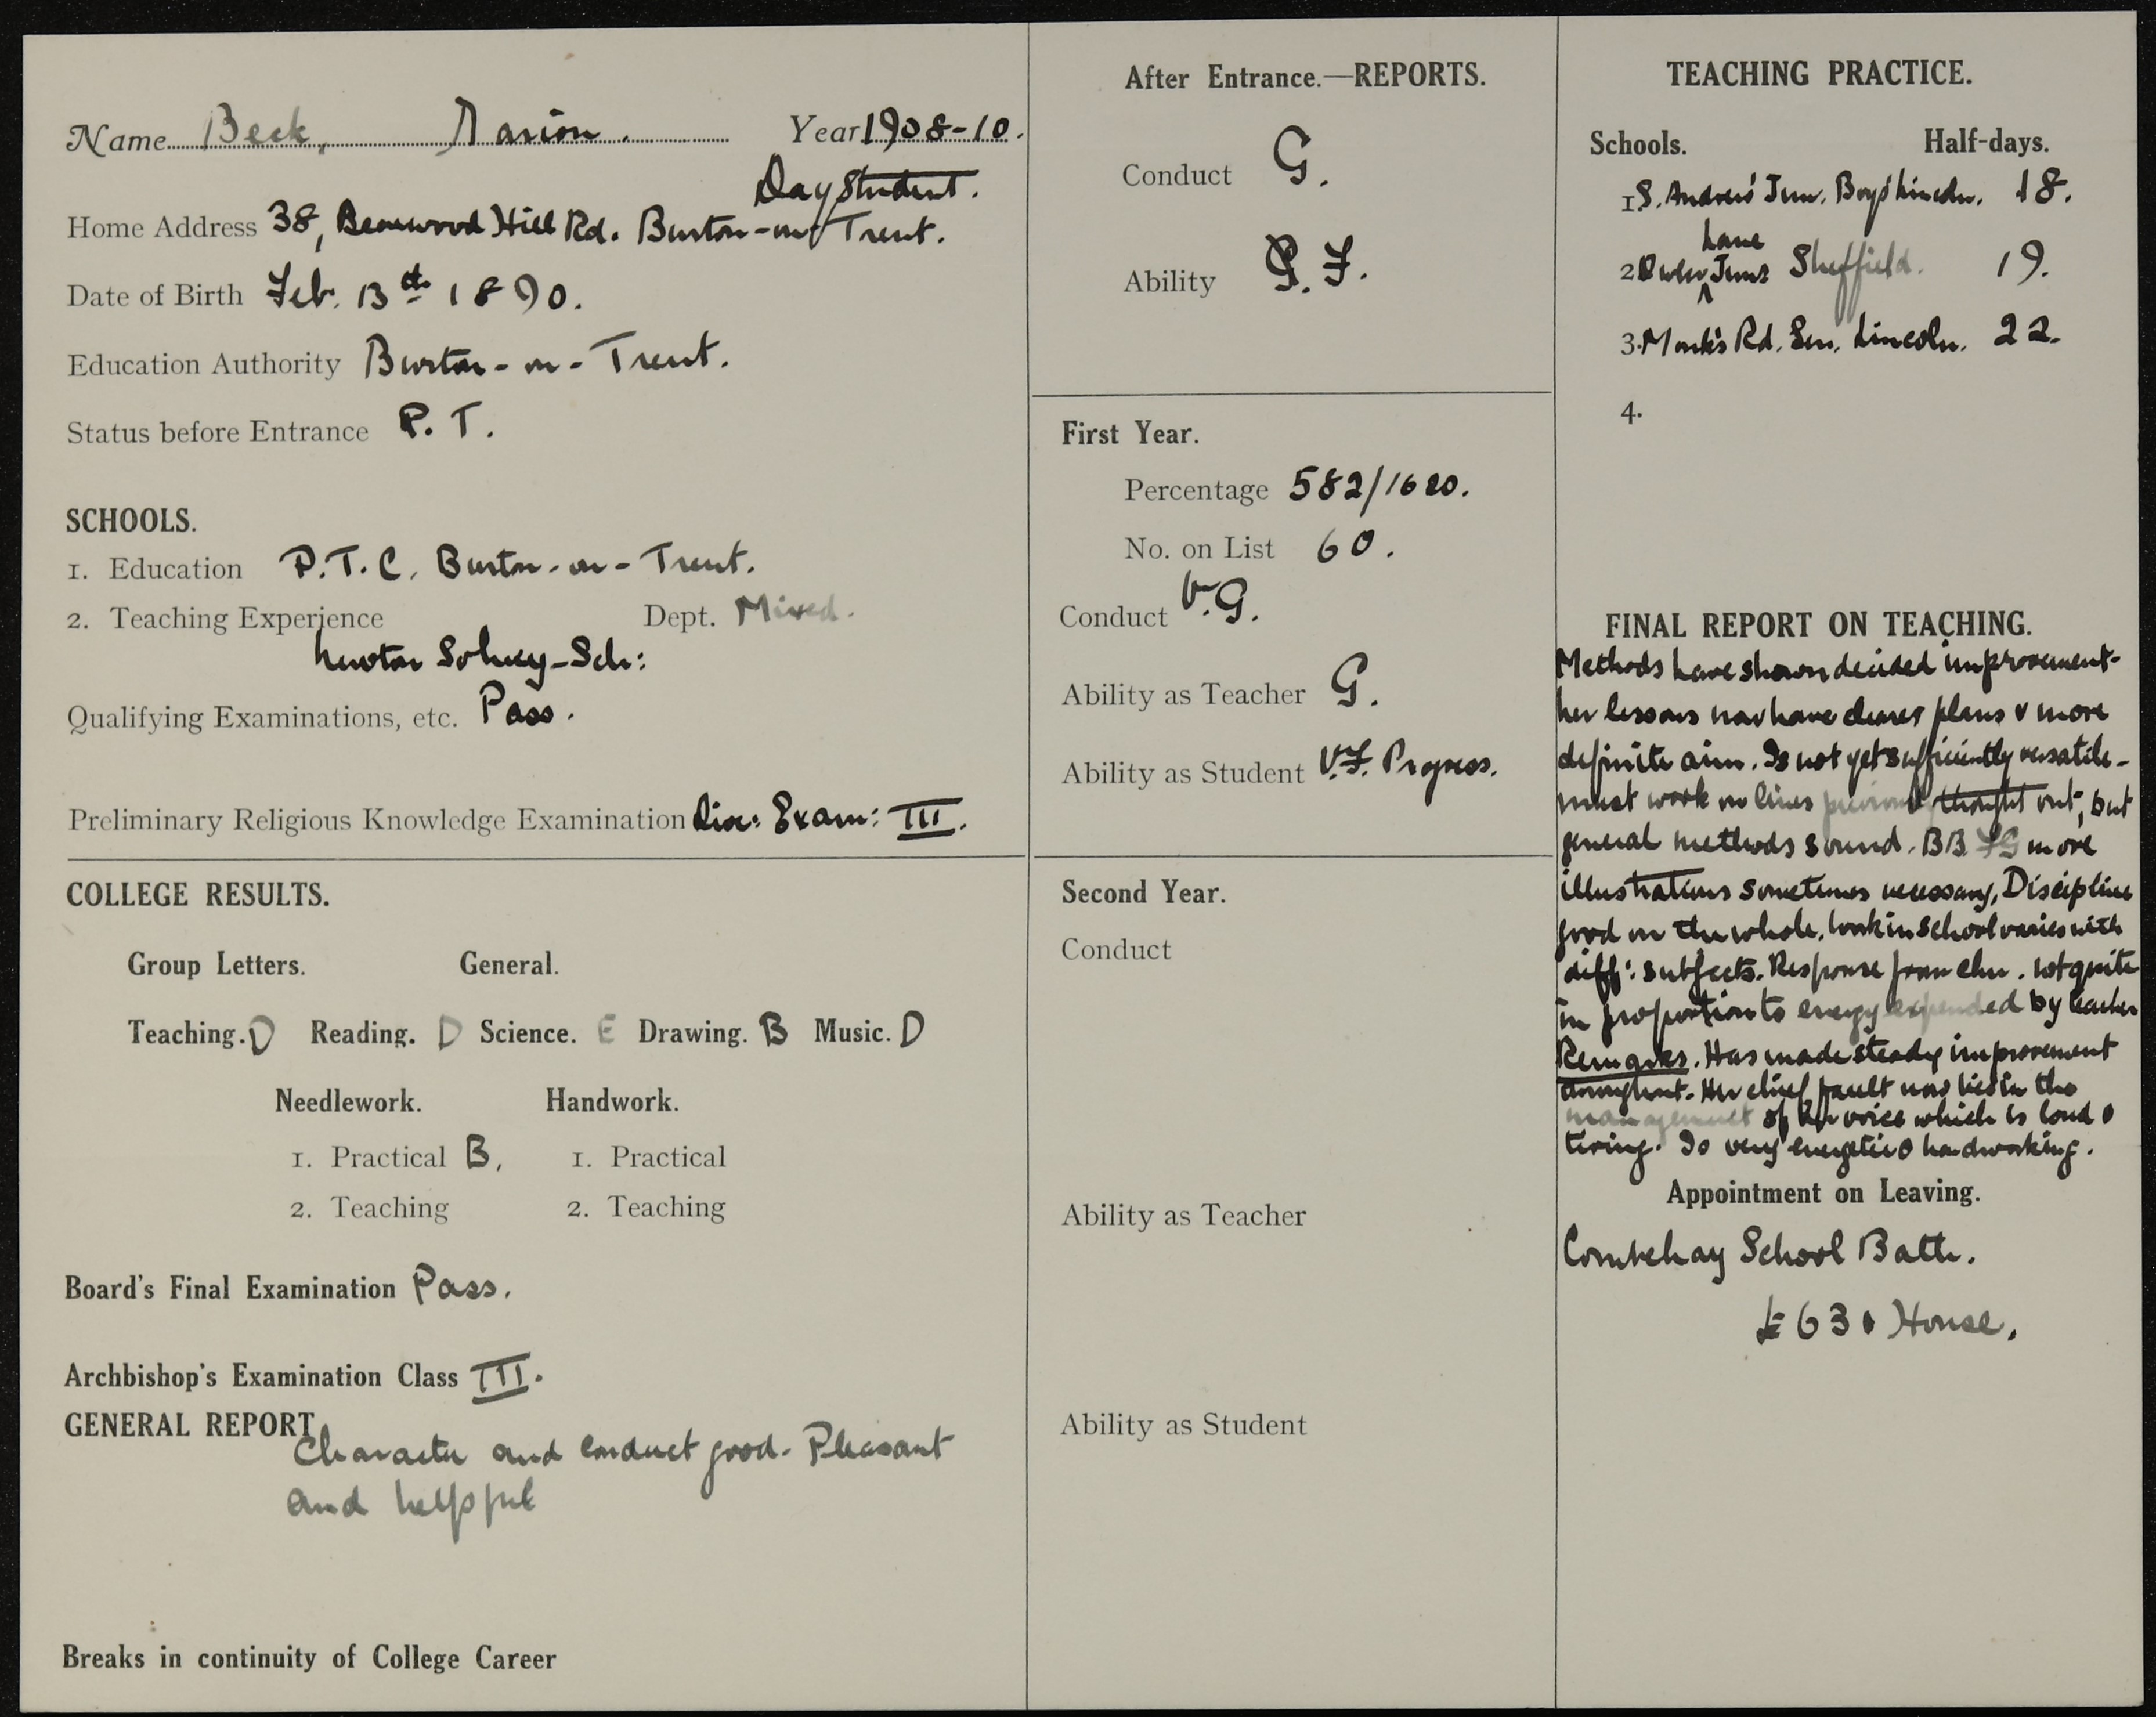 Name Beck, Marion. Year 1908-10.
Day Student.
Home Address 38, Bearwood Hill Rd. Burton-on-Trent.
Date of Birth Feb. 13th 1890.
Education Authority Burton-on-Trent.
Status before Entrance P. T.
SCHOOLS.
1. Education P.T.C. Burton-on-Trent.
2. Teaching Experience Dept. Mixed.
Newton Solney-Sch:
Qualifying Examinations, etc. Pass.
Preliminary Religious Knowledge Examination Dioc: Exam: III.
COLLEGE RESULTS.
Group Letters. General.
Teaching. D Reading. D Science. E Drawing. B Music. D
Needlework. Handwork.
1. Practical B, 1. Practical
2. Teaching 2. Teaching
Board's Final Examination Pass.
Archbishop's Examination Class III.
GENERAL REPORT
Character and conduct good. Pleasant
and helpful
Breaks in continuity of College Career
After Entrance.—REPORTS.
Conduct G.
Ability F.
First Year.
Percentage 582/1620.
No. on List 60.
Conduct V.G.
Ability as Teacher G.
Ability as Student V.F. Progress.
Second Year.
Conduct
Ability as Teacher
Ability as Student
TEACHING PRACTICE.
Schools. Half-days.
1. S. Andrew's Jun. Boys' Lincoln. 18.
Lane
2. Owler Juns Sheffield. 19.
3. Monk's Rd. Sen. Lincoln. 22.
4.
FINAL REPORT ON TEACHING.
Methods have shown decided improvement-
her lessons now have clearer plans & more
definite aim. Is not yet sufficiently versatile-
must work on lines previously thought out, but
general methods sound. BB FG more
illustrations sometimes necessary, Discipline
good on the whole. Work in School varies with
diff: subjects. Response from chn. not quite
in proportion to energy expended by teacher
Remarks. Has made steady improvement
throughout. Her chief fault now lies in the
management of her voice which is loud &
tiring. Is very energetic & hardworking.
Appointment on Leaving.
Combehay School Bath.
£63 & House.